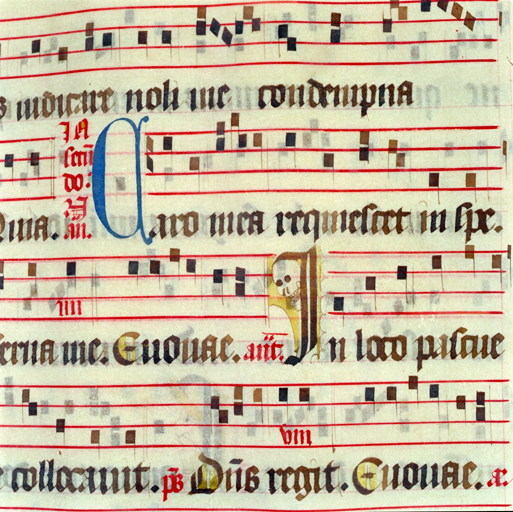 iudicare noli me condempna
IN
secun
do:
an.
Caro mea requiescet in spe.
erna me. Euouae. ant. In loco pascue
iiii
viii
collocauit. ps Dns regit. Euouae.